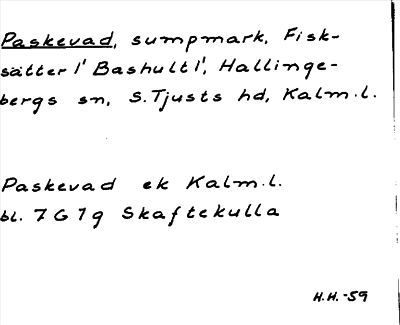 Paskevad, sumpmark, Fisk-
sätter 1' Bashult 1', Hallinge-
bergs sn, S. Tjusts hd, Kalm.l.
Paskevad ek Kalm.l.
bl. 7G7g Skaftekulla
H.H. -59